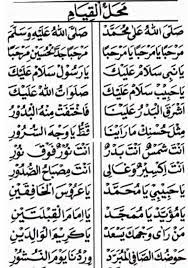 محل القيام
صَلَّى اللهُ عَلَى مُحَمَّدْ صَلَّى اللهُ عَلَيْهِ وَسَلَّمْ
مَرْحَبًا يَا مَرْحَبًا يَا مَرْحَبًا مَرْحَبًا جَدَّ الْحُسَيْنِ مَرْحَبًا
يَا نَبِي سَلَامْ عَلَيْكَ يَا رَسُولْ سَلَامْ عَلَيْكَ
يَا حَبِيبْ سَلَامْ عَلَيْكَ صَلَوَاتُ اللهْ عَلَيْكَ
أَشْرَقَ الْبَدْرُ عَلَيْنَا فَاخْتَفَتْ مِنْهُ الْبُدُورْ
مِثْلَ حُسْنِكْ مَا رَأَيْنَا قَطُّ يَا وَجْهَ السُّرُورْ
أَنْتَ شَمْسٌ أَنْتَ بَدْرٌ أَنْتَ نُورٌ فَوْقَ نُورْ
أَنْتَ إِكْسِيرٌ وَغَالِي أَنْتَ مِصْبَاحُ الصُّدُورْ
يَا حَبِيبِي يَا مُحَمَّدْ يَا عَرُوسَ الْخَافِقَيْنِ
يَا مُؤَيَّدْ يَا مُمَجَّدْ يَا إِمَامَ الْقِبْلَتَيْنِ
مَنْ رَأَى وَجْهَكَ يَسْعَدْ يَا كَرِيمَ الْوَالِدَيْنِ
حَوْضُكَ الصَّافِي الْمُبَرَّدْ وِرْدُنَا يَوْمَ النُّشُورْ